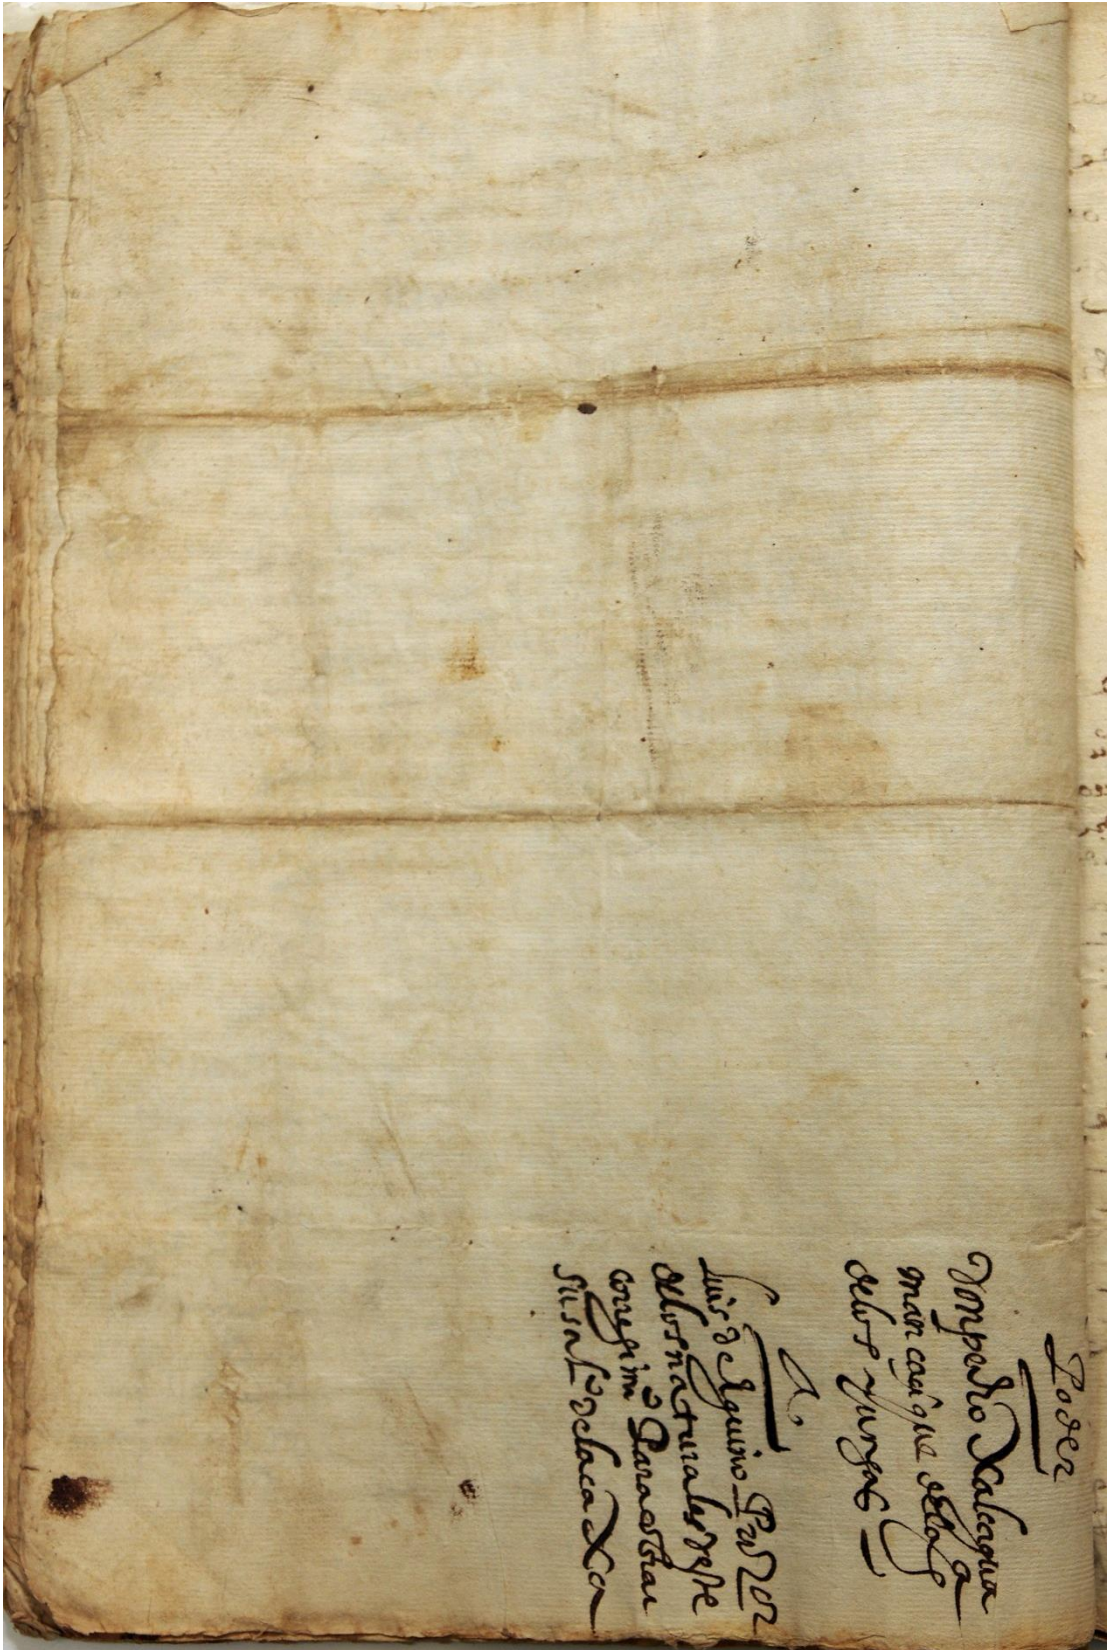 Poder
Don pedro Xalcaguaman caçique
delos yungas
A
luis de Aquino Pro⁠dor
delos naturales deste
corregimiº Para cobrar
su salº dela caXa